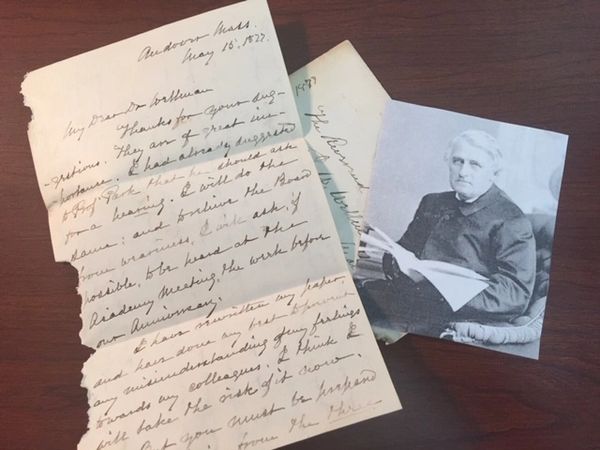 Andover Mass.
May 15, 1877.
My Dear Dr Wellman
Thanks for your sug-
gestions. They are of great im-
portance. I had already suggested
to Prof. Park that he should ask
for a hearing. I will do the
same; and to relieve the Board
from weariness, I will ask, if
possible, to be heard at the
Academy Meeting, the week before
our Anniversary.
I have rewritten my paper,
and have done my best to prevent
any misunderstanding of my feelings
towards my colleagues. I think I
will take the risk of it now.
But you must be prepared
from the three
1877
The Reverend
Wellman